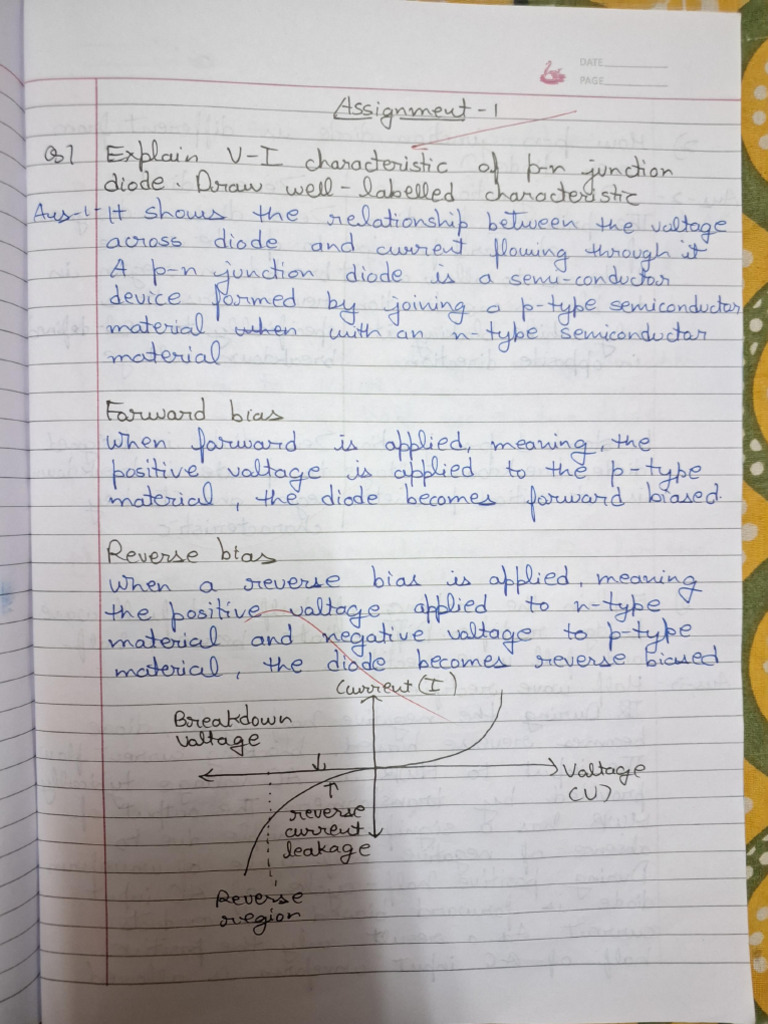 DATE
PAGE
Assignment - 1
Q1 Explain V-I characteristic of p-n junction
diode. Draw well-labelled characteristic
Ans-1- It shows the relationship between the voltage
across diode and current flowing through it
A p-n junction diode is a semi-conductor
device formed by joining a p-type semiconductor
material when with an n-type semiconductor
material
Forward bias
When forward is applied, meaning, the
positive voltage is applied to the p-type
material, the diode becomes forward biased.
Reverse bias
When a reverse bias is applied, meaning
the positive voltage applied to n-type
material and negative voltage to p-type
material, the diode becomes reverse biased
Current (I)
Breakdown
voltage
Voltage
(V)
reverse
current
leakage
Reverse
region